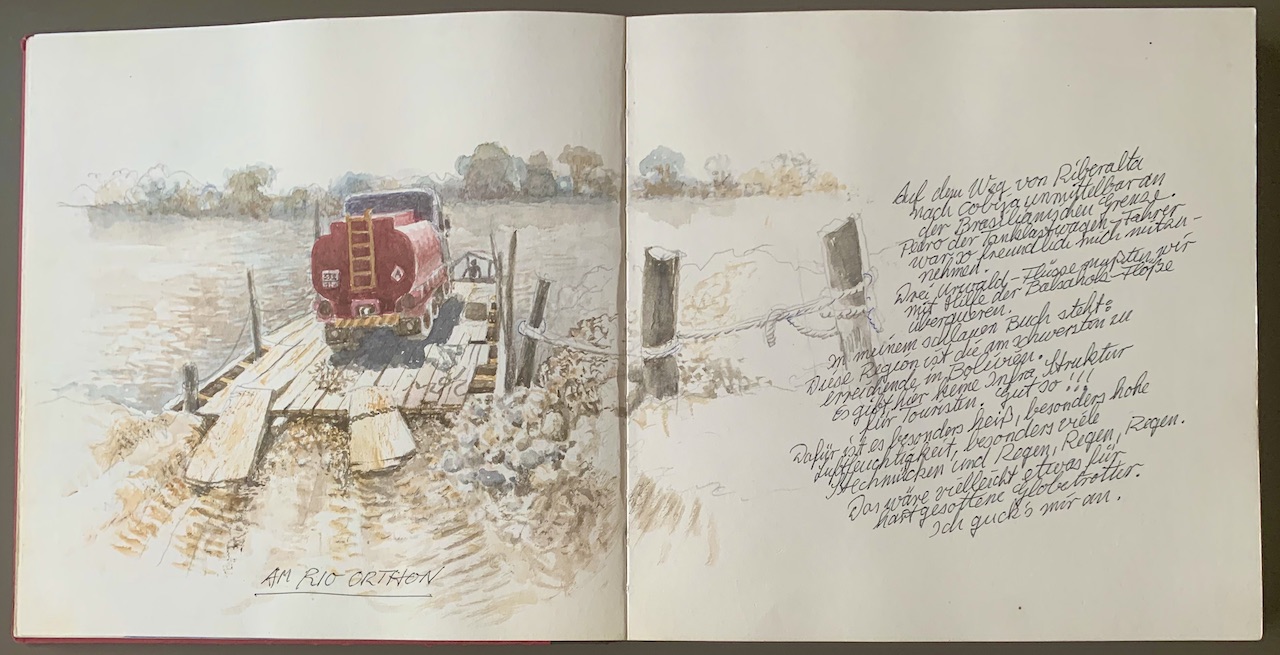 AM RIO ORTHON
Auf dem Weg von Riberalta
nach Cobija unmittelbar an
der Brasilianischen Grenze.
Pedro der Tanklastwagen-Fahrer
war so freundlich mich mitzu-
nehmen.
Drei Urwald-Flüsse mußten wir
mit Hilfe der Balsaholz-Flöße
überqueren.
In meinem schlauen Buch steht:
Diese Region ist die am schwersten zu
erreichende in Bolivien.
Es gibt hier keine Infra, Struktur
für Touristen. Gut so!!!
Dafür ist es besonders heiß, besonders hohe
Luftfeuchtigkeit, besonders viele
Stechmücken und Regen, Regen, Regen.
Das wäre vielleicht etwas für
hart gesottene Globetrotter.
Ich guck's mir an.